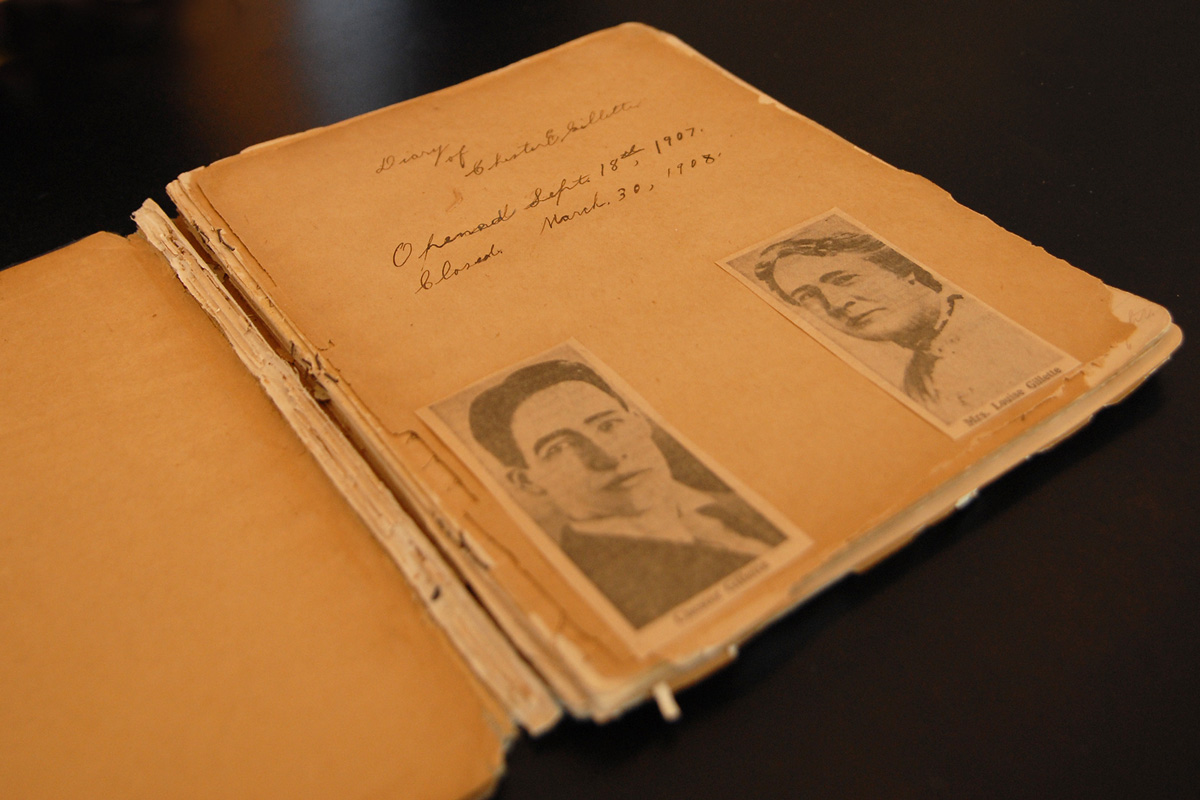 Diary
of
Chester E. Gillette
Opened Sept. 18th, 1907.
Closed. March. 30, 1908.
Mrs. Louise Gillette
Chester Gillette